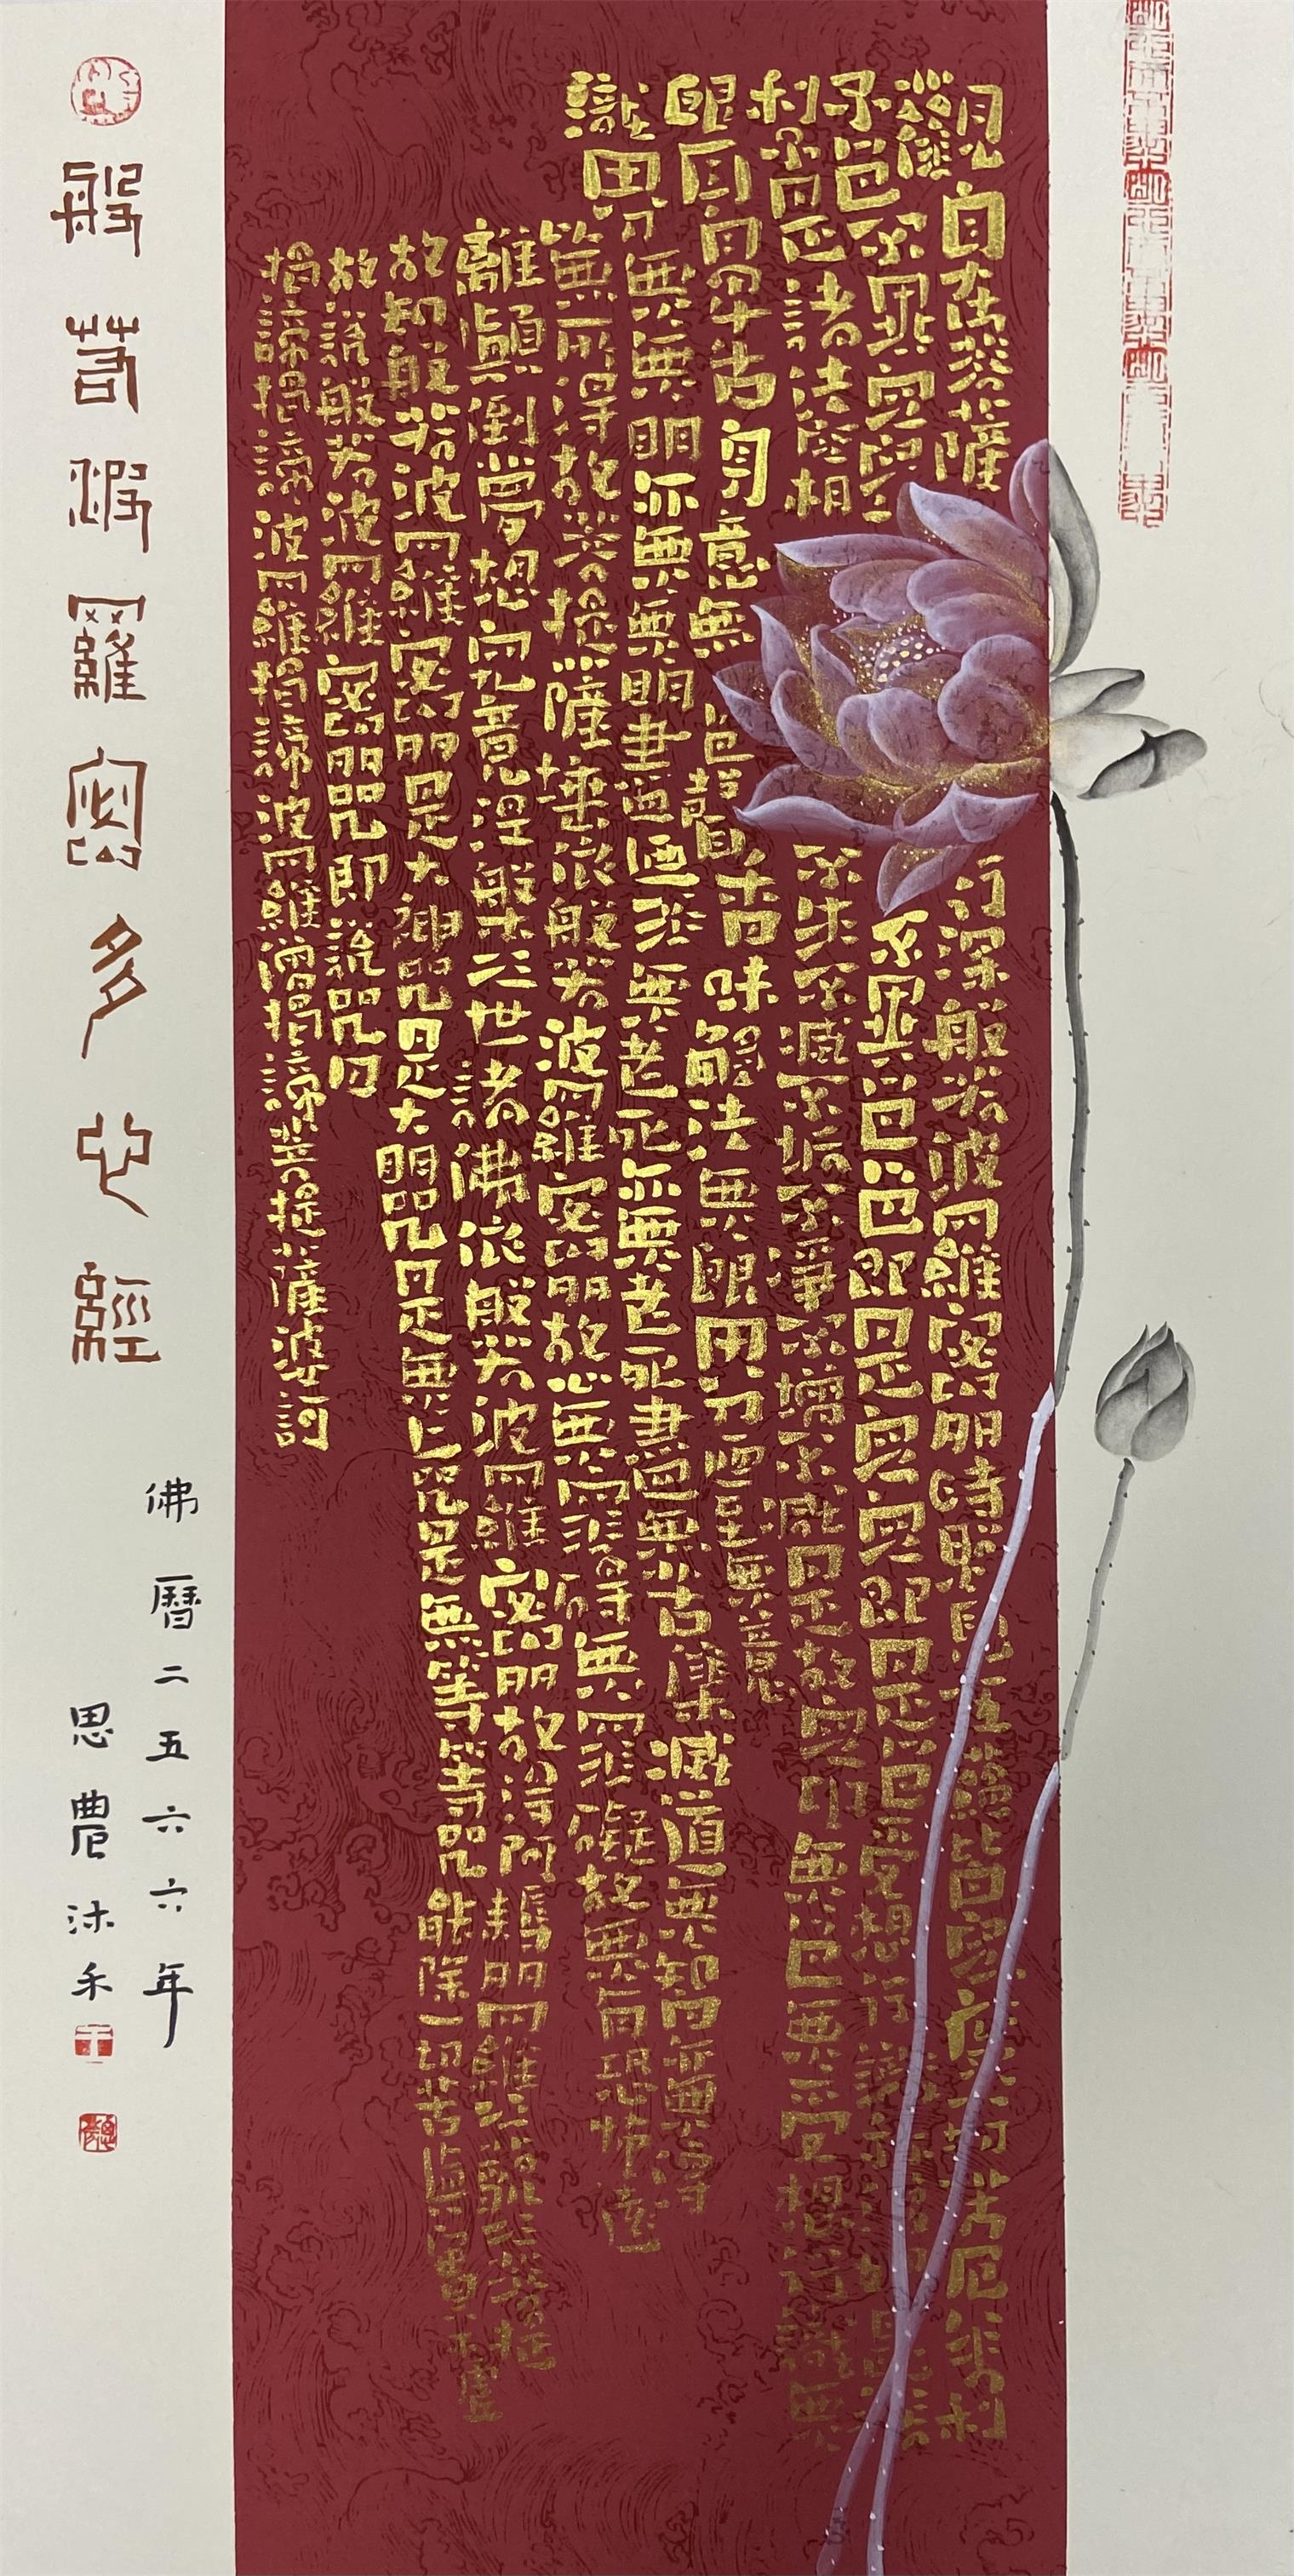 觀自在菩薩行深般若波羅蜜多時照見五蘊皆空度一切苦厄舍利
子色不異空空不異色色即是空空即是色受想行識亦復如是舍
利子是諸法空相不生不滅不垢不淨不增不減是故空中無色無受想行識無
眼耳鼻舌身意無色聲香味觸法無眼界乃至無意
識界無無明亦無無明盡乃至無老死亦無老死盡無苦集滅道無智亦無得
以無所得故菩提薩埵依般若波羅蜜多故心無罣礙無罣礙故無有恐怖遠
離顛倒夢想究竟涅槃三世諸佛依般若波羅蜜多故得阿耨多羅三藐三菩提
故知般若波羅蜜多是大神咒是大明咒是無上咒是無等等咒能除一切苦真實不虛
故說般若波羅蜜多咒即說咒曰
揭諦揭諦波羅揭諦波羅僧揭諦菩提薩婆訶
般若波羅蜜多心經
佛曆二五六六年
思農沐手